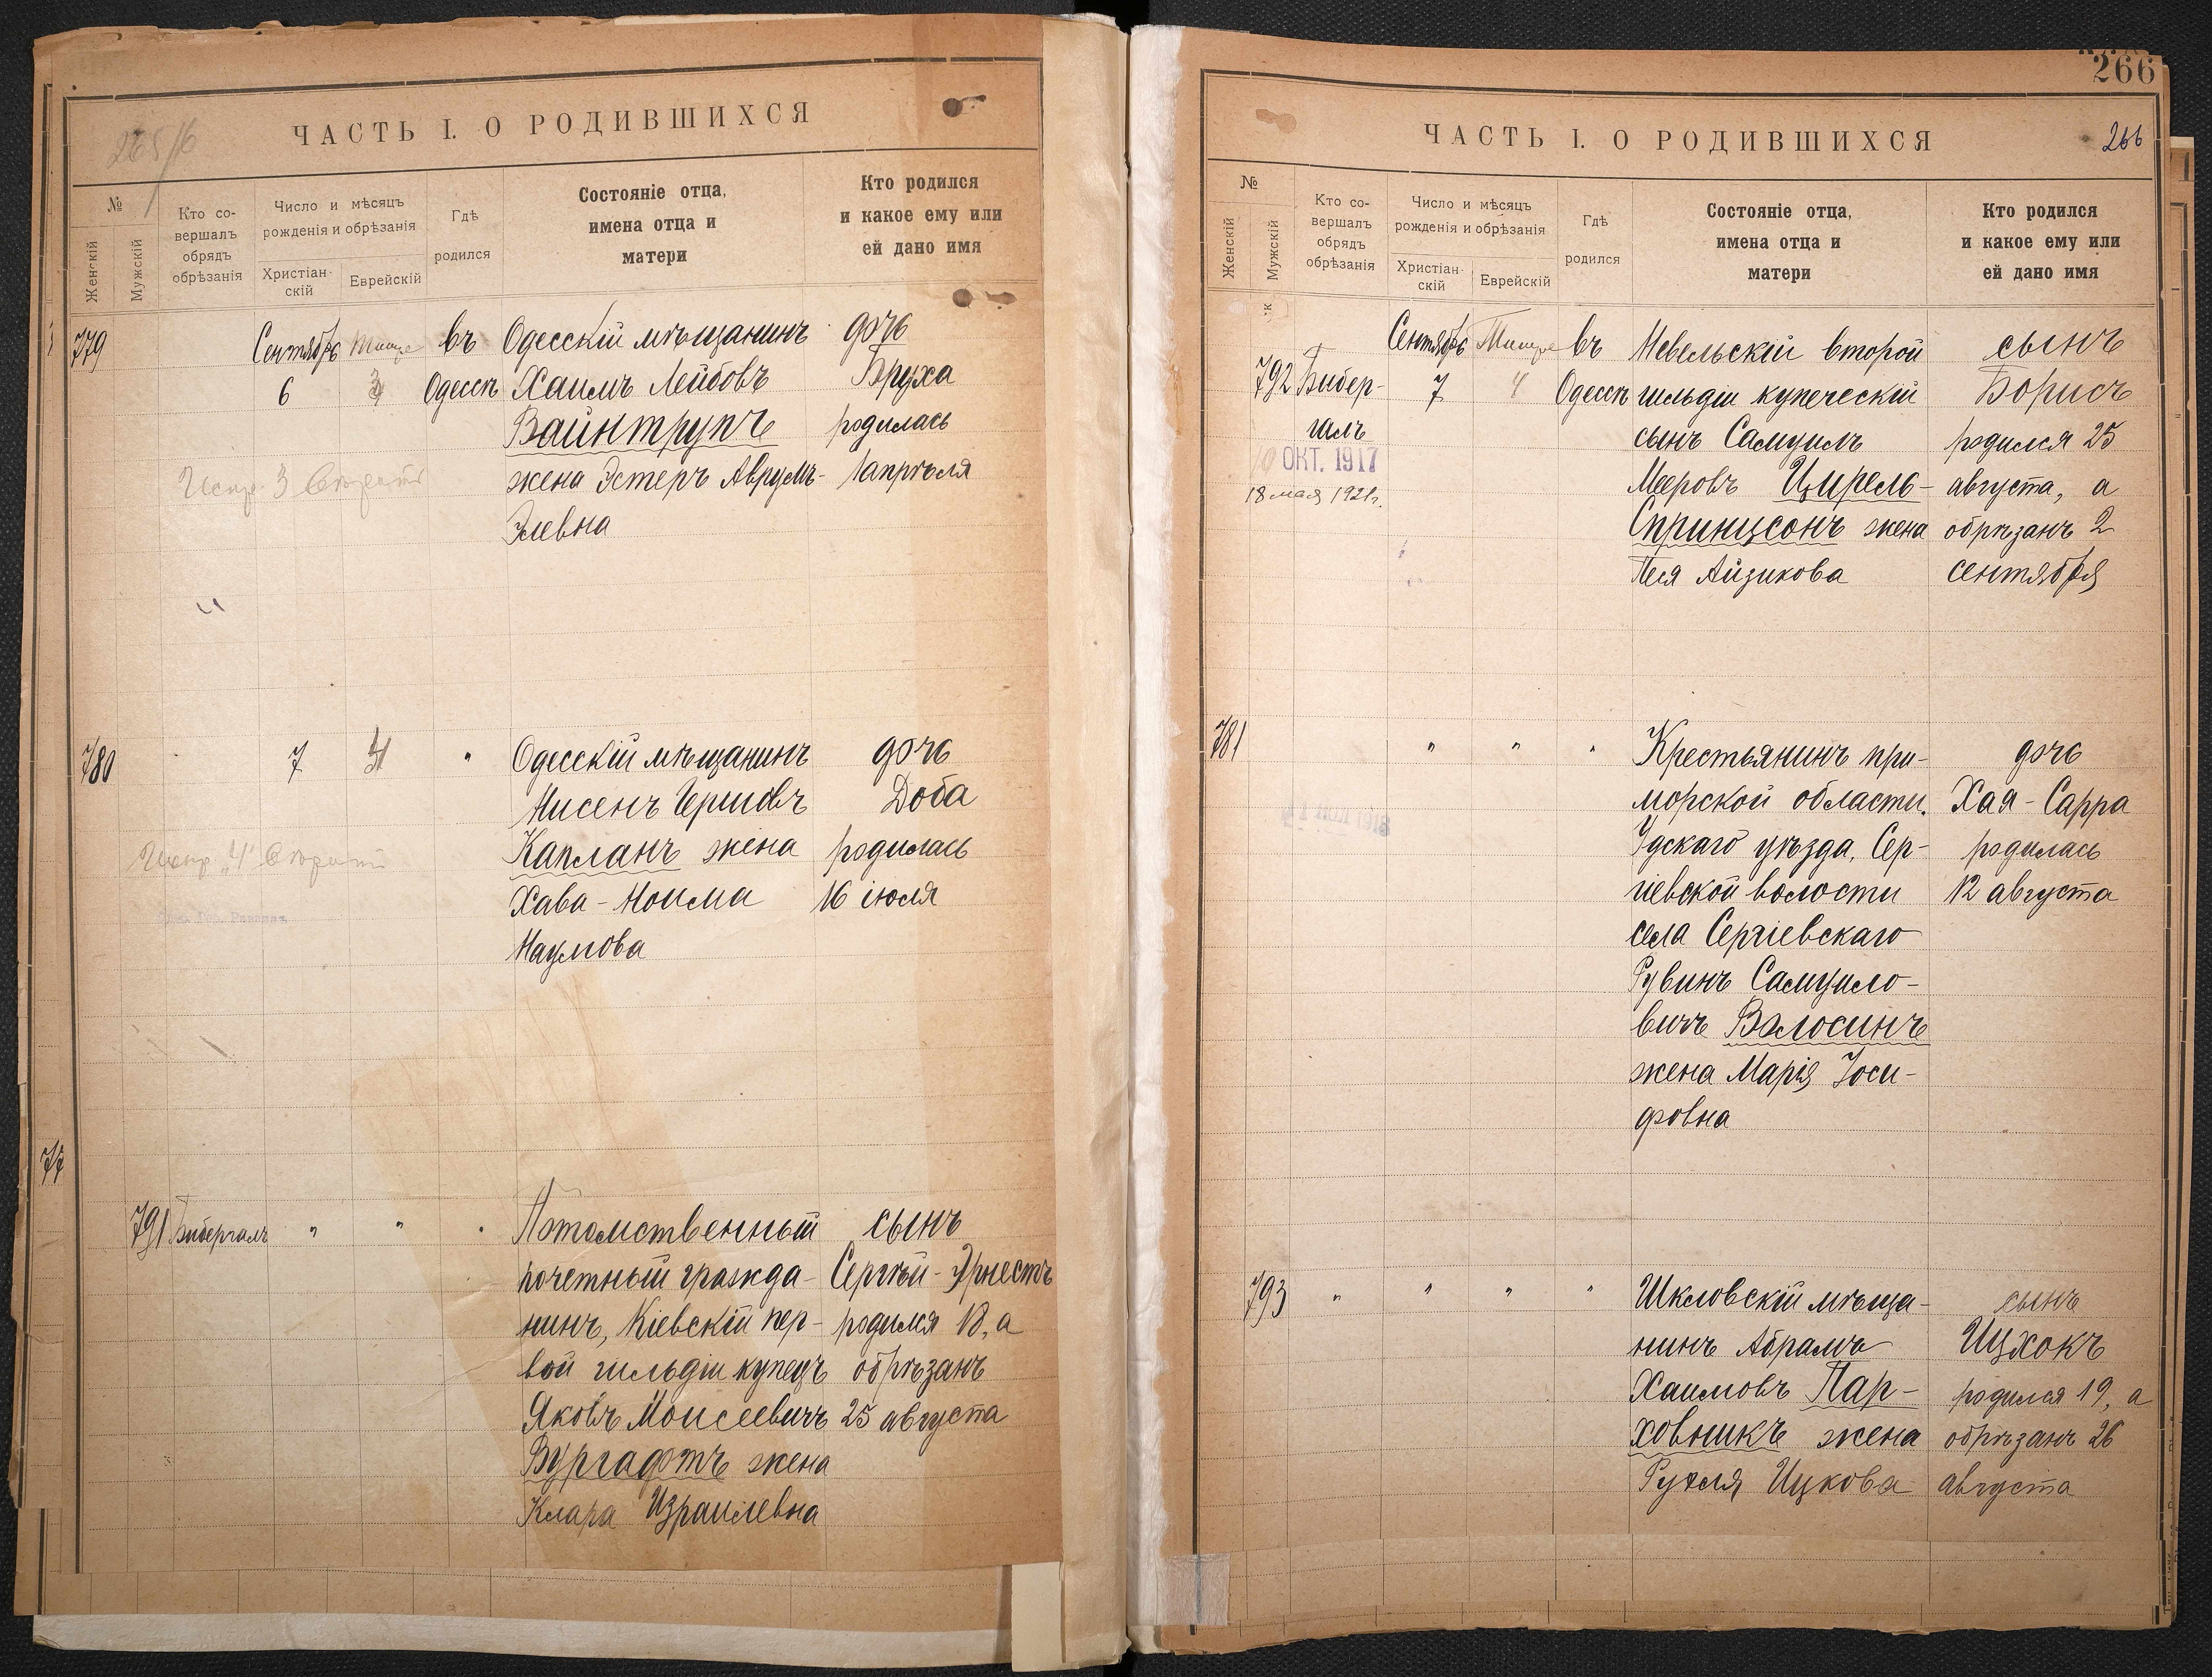 265/16
ЧАСТЬ I. О РОДИВШИХСЯ
№
Женскій
Мужскій
Кто со-
вершалъ
обрядъ
обрѣзанія
Число и мѣсяцъ
рожденія и обрѣзанія
Христіан-
скій
Еврейскій
Гдѣ
родился
Состояніе отца,
имена отца и
матери
Кто родился
и какое ему или
ей дано имя
779
Сентябрь
6
Тишре
3
въ
Одессѣ
Одесскій мѣщанинъ
Хаимъ Лейбовъ
Вайнтрупъ
жена Эстеръ Аврумъ-
Элевна
дочь
Бруха
родилась
1 апрѣля
780
7
4
"
Одесскій мѣщанинъ
Нисенъ Гершовъ
Капланъ жена
Хава-Ноима
Наумова
дочь
Доба
родилась
16 іюля
77
791
Бибергалъ
"
"
"
Потомственный
почетный гражда-
нинъ, Кіевскій пер-
вой гильдіи купецъ
Яковъ Моисеевичъ
Вургафтъ жена
Клара Израилевна
сынъ
Сергѣй-Эрнестъ
родился 18, а
обрѣзанъ
25 августа
266
ЧАСТЬ I. О РОДИВШИХСЯ
266
№
Женскій
Мужскій
Кто со-
вершалъ
обрядъ
обрѣзанія
Число и мѣсяцъ
рожденія и обрѣзанія
Христіан-
скій
Еврейскій
Гдѣ
родился
Состояніе отца,
имена отца и
матери
Кто родился
и какое ему или
ей дано имя
792
Бибер-
галъ
10 ОКТ. 1917
18 мая 1921г.
Сентябрь
7
Тишре
4
въ
Одессѣ
Невельскій второй
гильдіи купеческій
сынъ Самуилъ
Мееровъ Цирель-
Спринцсонъ жена
Песя Айзикова
сынъ
Борисъ
родился 25
августа, а
обрѣзанъ 2
сентября
781
"
"
"
Крестьянинъ при-
морской области,
Удскаго уѣзда, Сер-
гіевской волости
села Сергіевскаго
Рувинъ Самуило-
вичъ Волосинъ
жена Марія Іоси-
фовна
дочь
Хая-Сарра
родилась
12 августа
793
"
"
"
"
Шкловскій мѣща-
нинъ Абрамъ
Хаимовъ Пар-
ховникъ жена
Рухля Ицкова
сынъ
Ицхокъ
родился 19, а
обрѣзанъ 26
августа